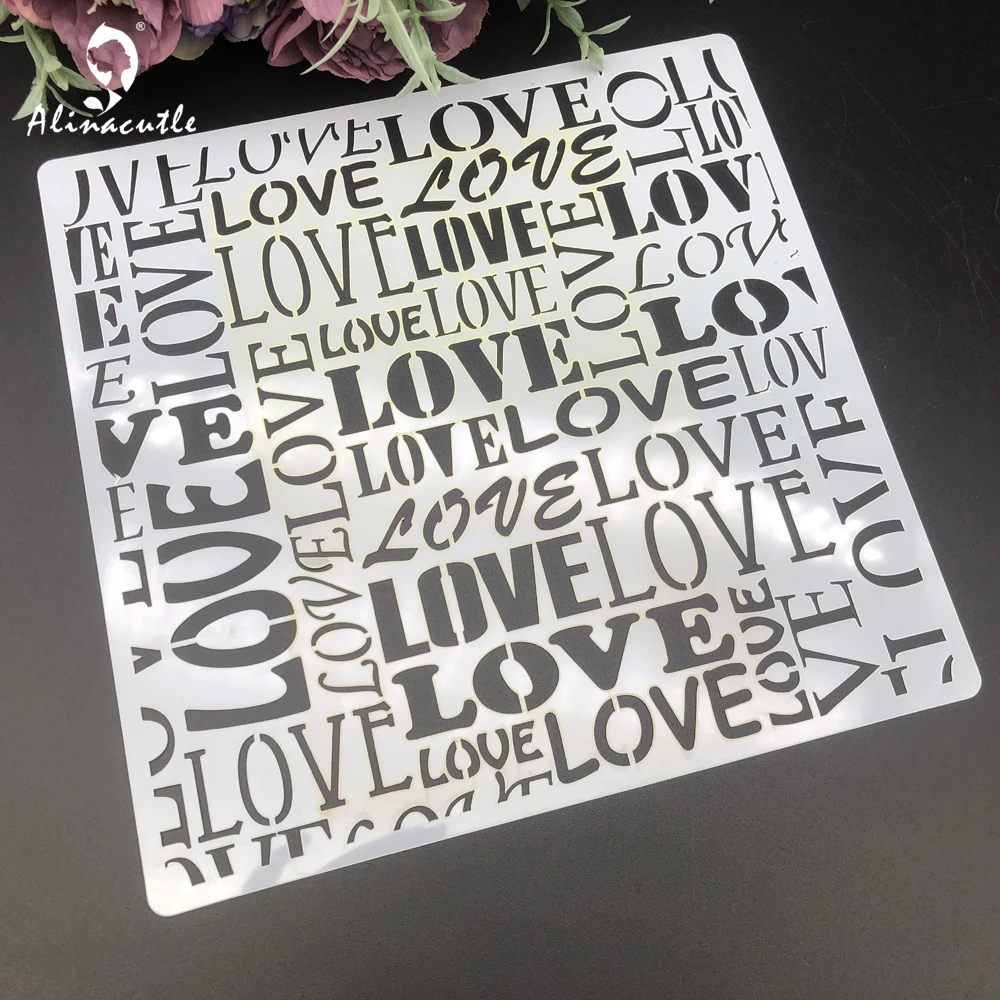 ®
Alinacutle
OVE LOVE LOVE LO
LOVE LOVE LOVE LOV
VE LOVE LOVE LOVE LOVE LOVE
E LOVE LOVE LOVE LOV
E LOVE LOVE LOVE LO
VE LOVE LOVE LOV
E LOVE LOVE LOVE
LOVE LOVE LOVE
LOVE LOVE LOVE VE
LOVE LOVE LOVE
OVE